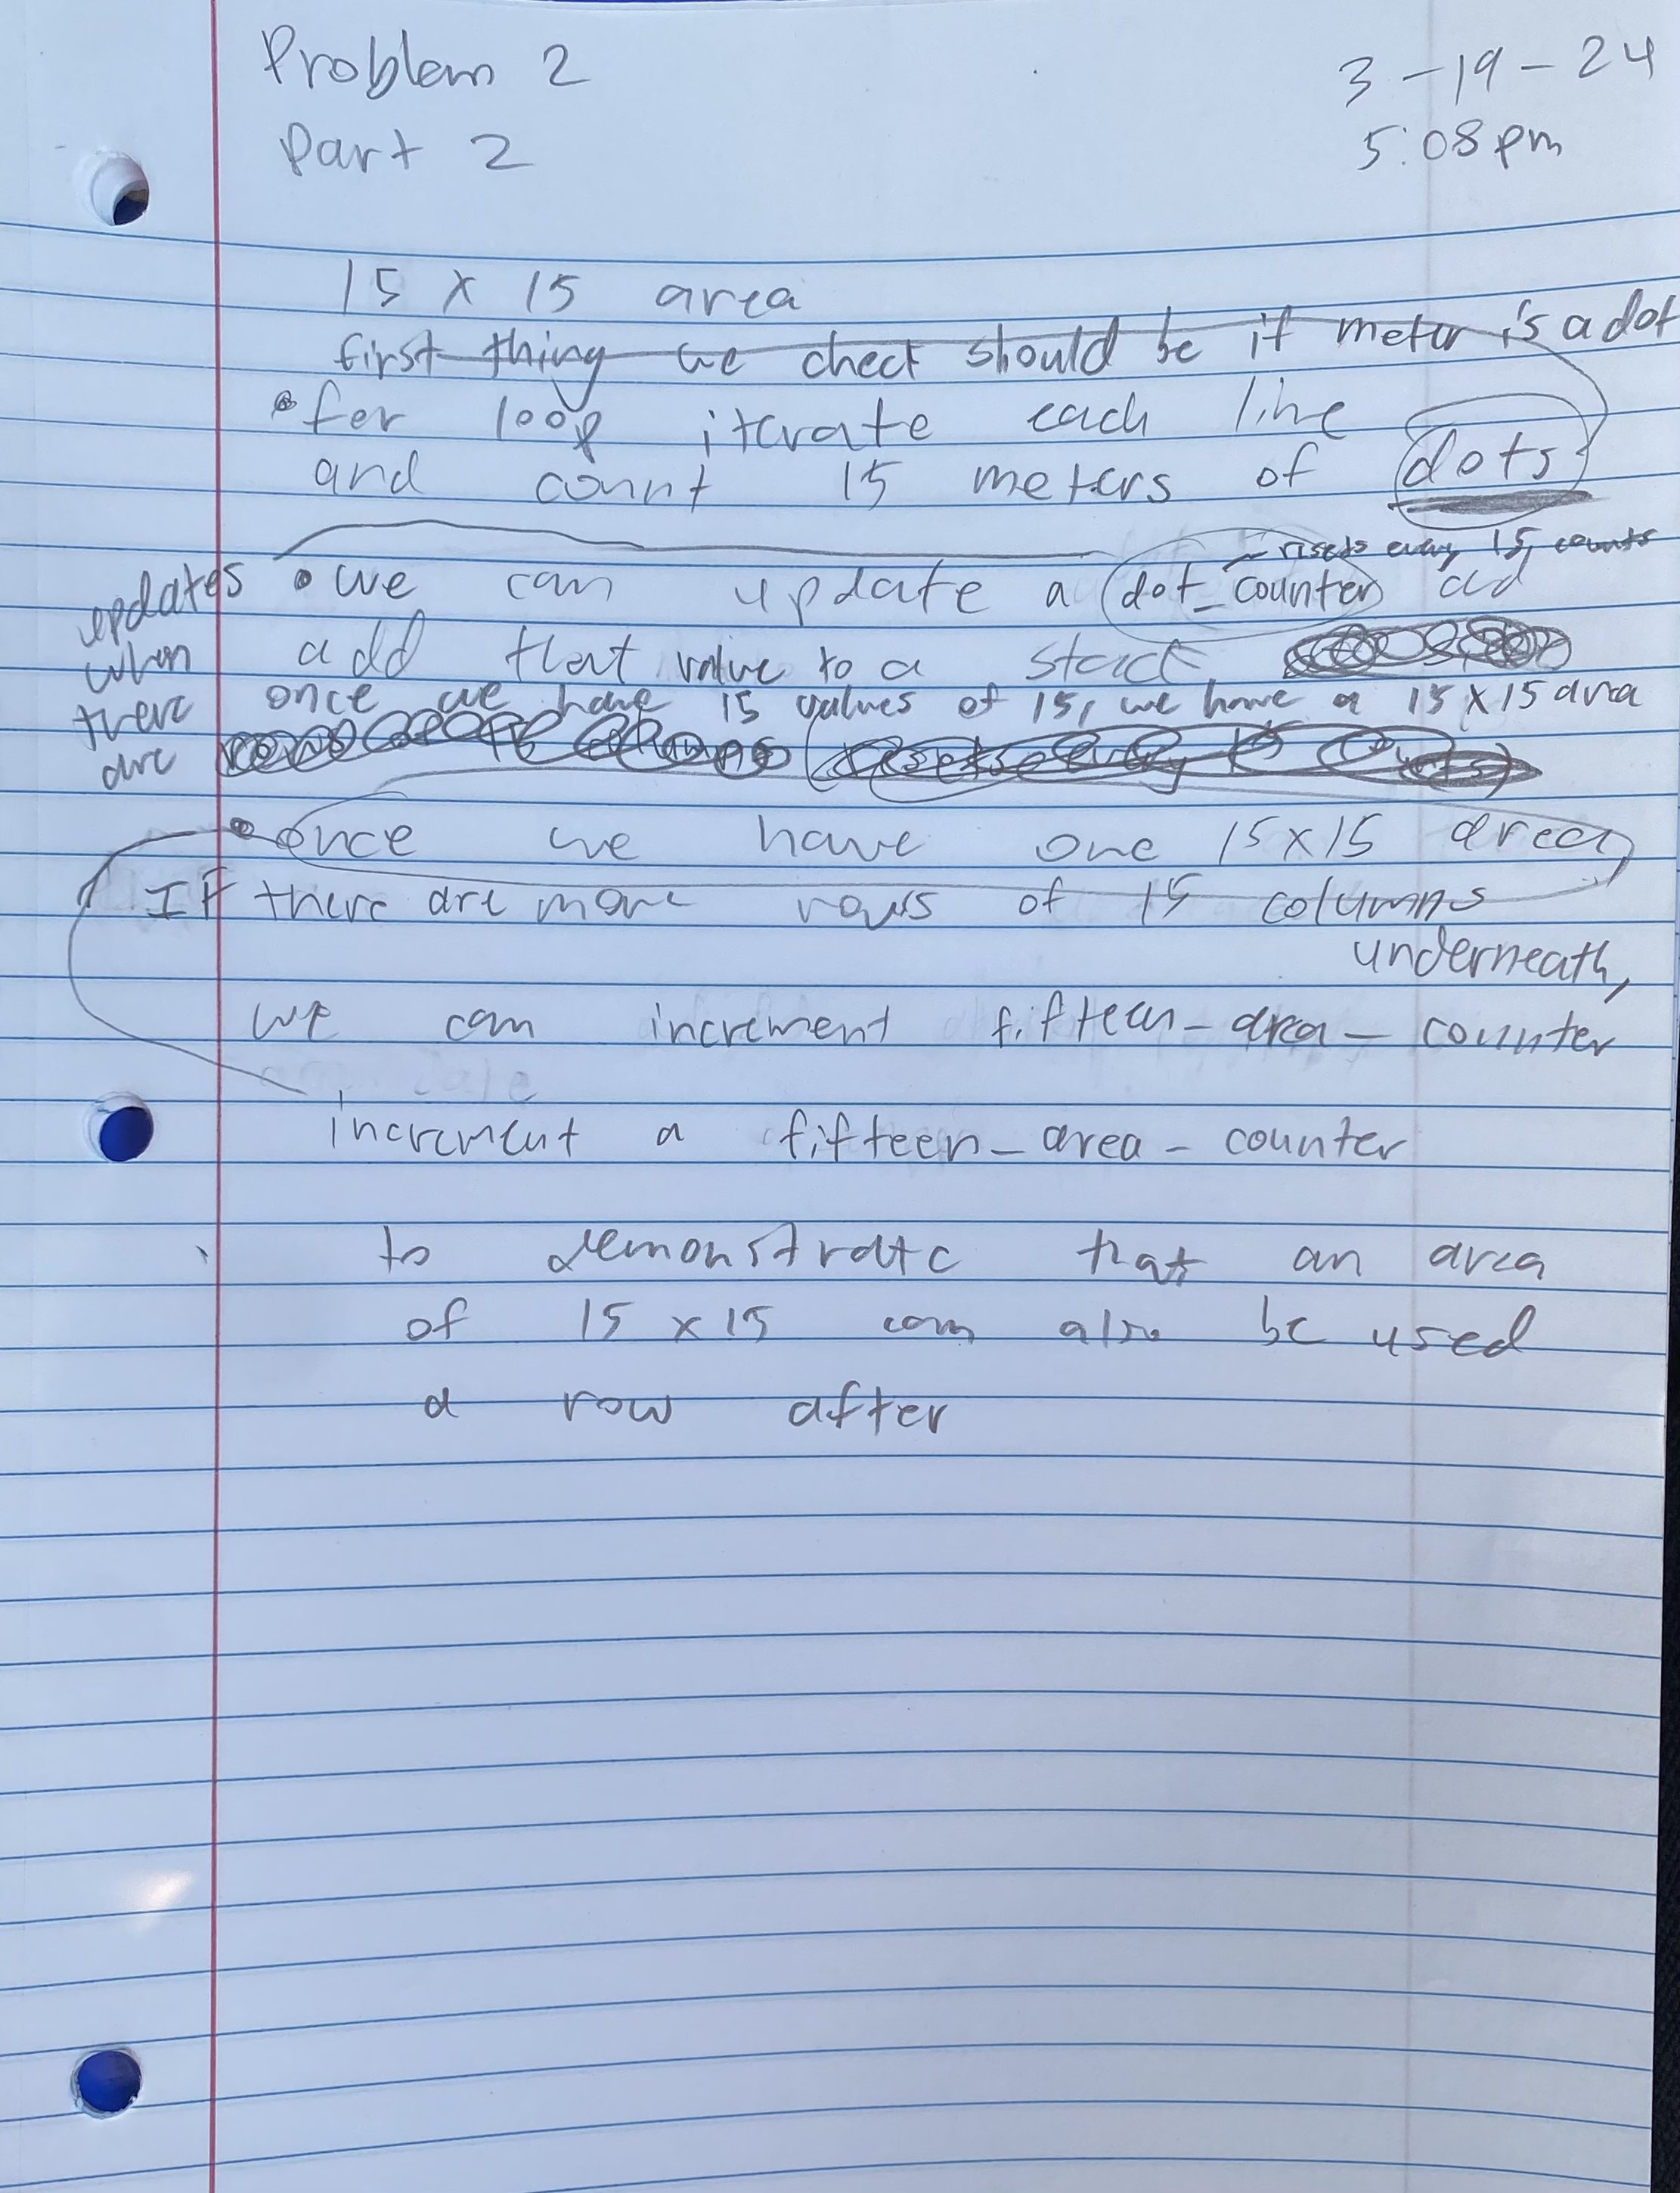 Problem 2
Part 2
3-19-24
5:08pm
15 x 15 area
first thing we check should be if meter is a dot
for loop iterate each line
and count 15 meters of dots
- risets every 15 counts
• we can update a dot_counter ad
updates
when
there
are
add that value to a stack
once we have 15 values of 15, we have a 15 x 15 area
• once we have one 15x15 area,
IF there are more rows of 15 columns
underneath,
we can increment fifteen-area-counter
increment a fifteen_area-counter
to demonstrate that an area
of 15 x 15 can also be used
a row after